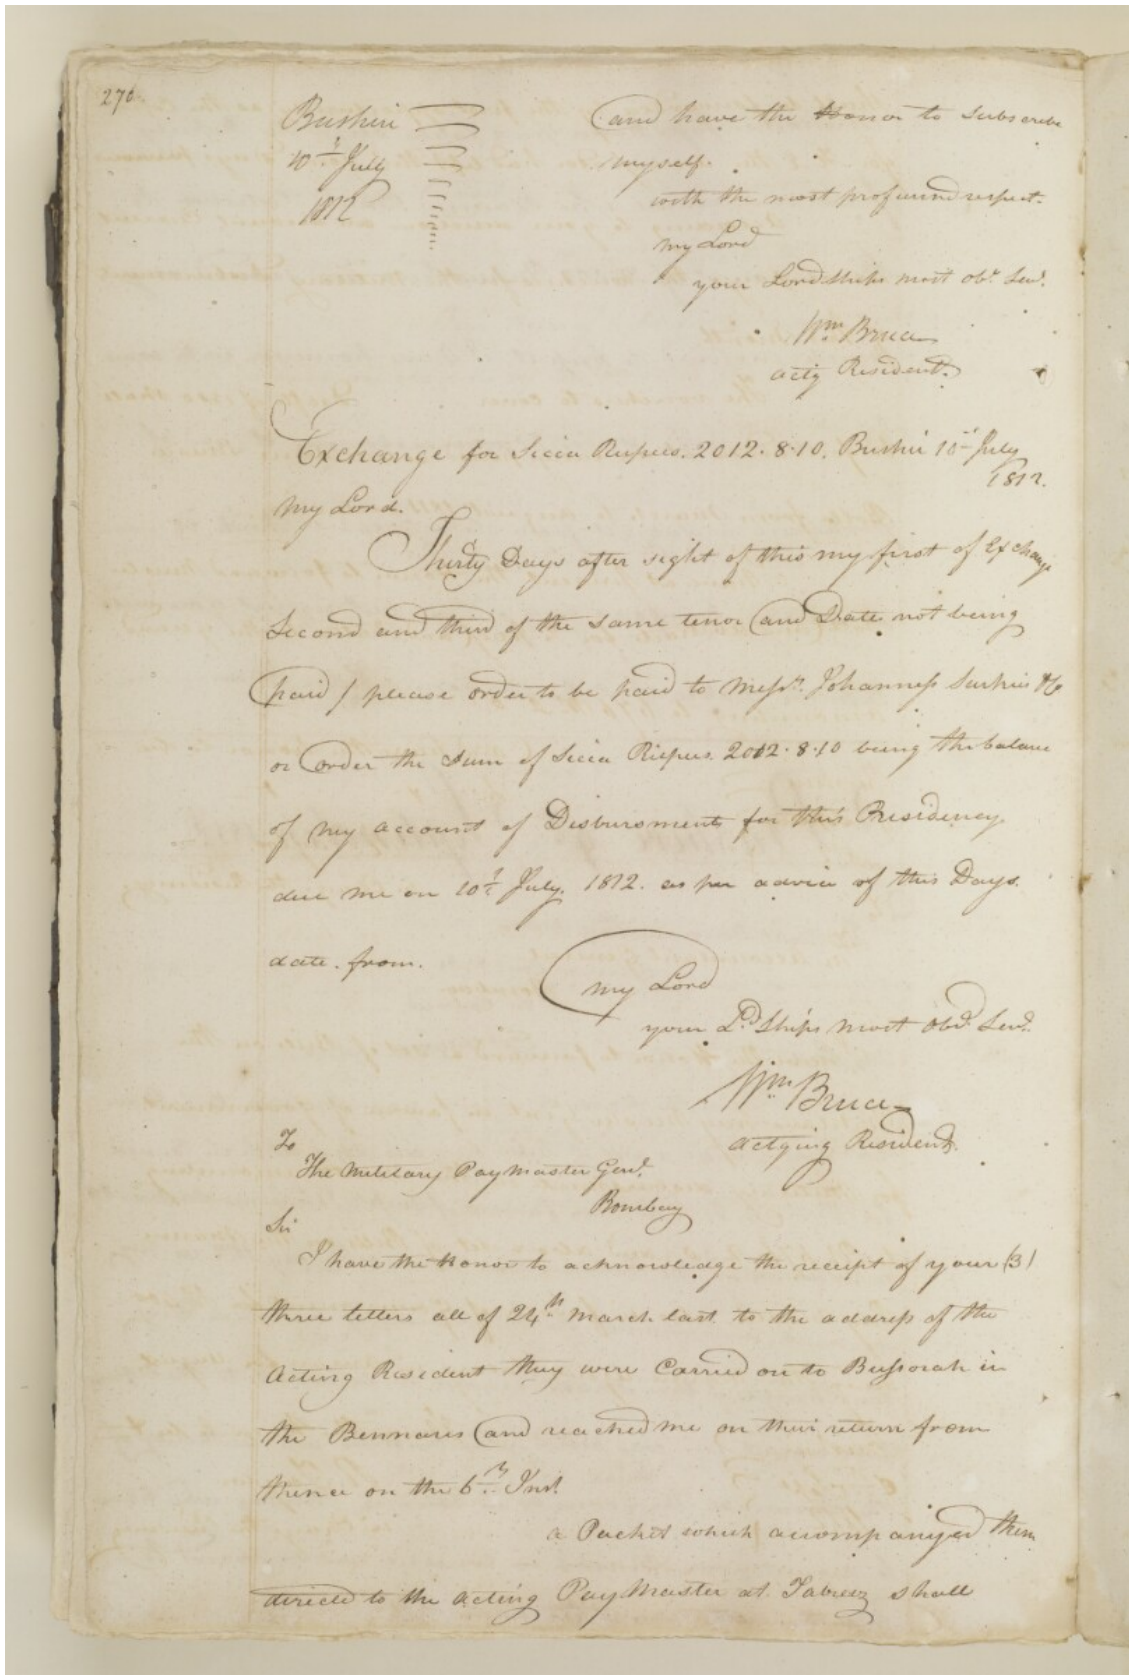 276.
Bushire
10th July
1812
and have the Honor to subscribe
myself.
with the most profound respect.
my Lord
your Lordships most obt. Servt.
Wm Bruce
actg Resident.
Exchange for Sicca Rupees. 2012.8.10. Bushire 10th July
1812.
My Lord.
Thirty Days after sight of this my first of Exchange
Second and third of the same tenor and Date not being
paid / please order to be paid to Messrs. Johanness Surkies &Co
or order the Sum of Sicca Rupees. 2012.8.10 being the balance
of my account of Disbursments for this Residency
due me on 10th July. 1812. as per advice of this Days.
date. from.
My Lord
your Ldships most obdt. Servt.
Wm Bruce
actging Resident.
To
The Military Paymaster Genl.
Bombay
Sir
I have the Honor to acknowledge the receipt of your (3)
three letters all of 24th March last to the address of the
Acting Resident they were Carried on to Bussorah in
the Bennares and reached me on their return from
thence on the 6th Inst.
a Packet which accompanyed them
directed to the acting Pay Master at Tabreez shall